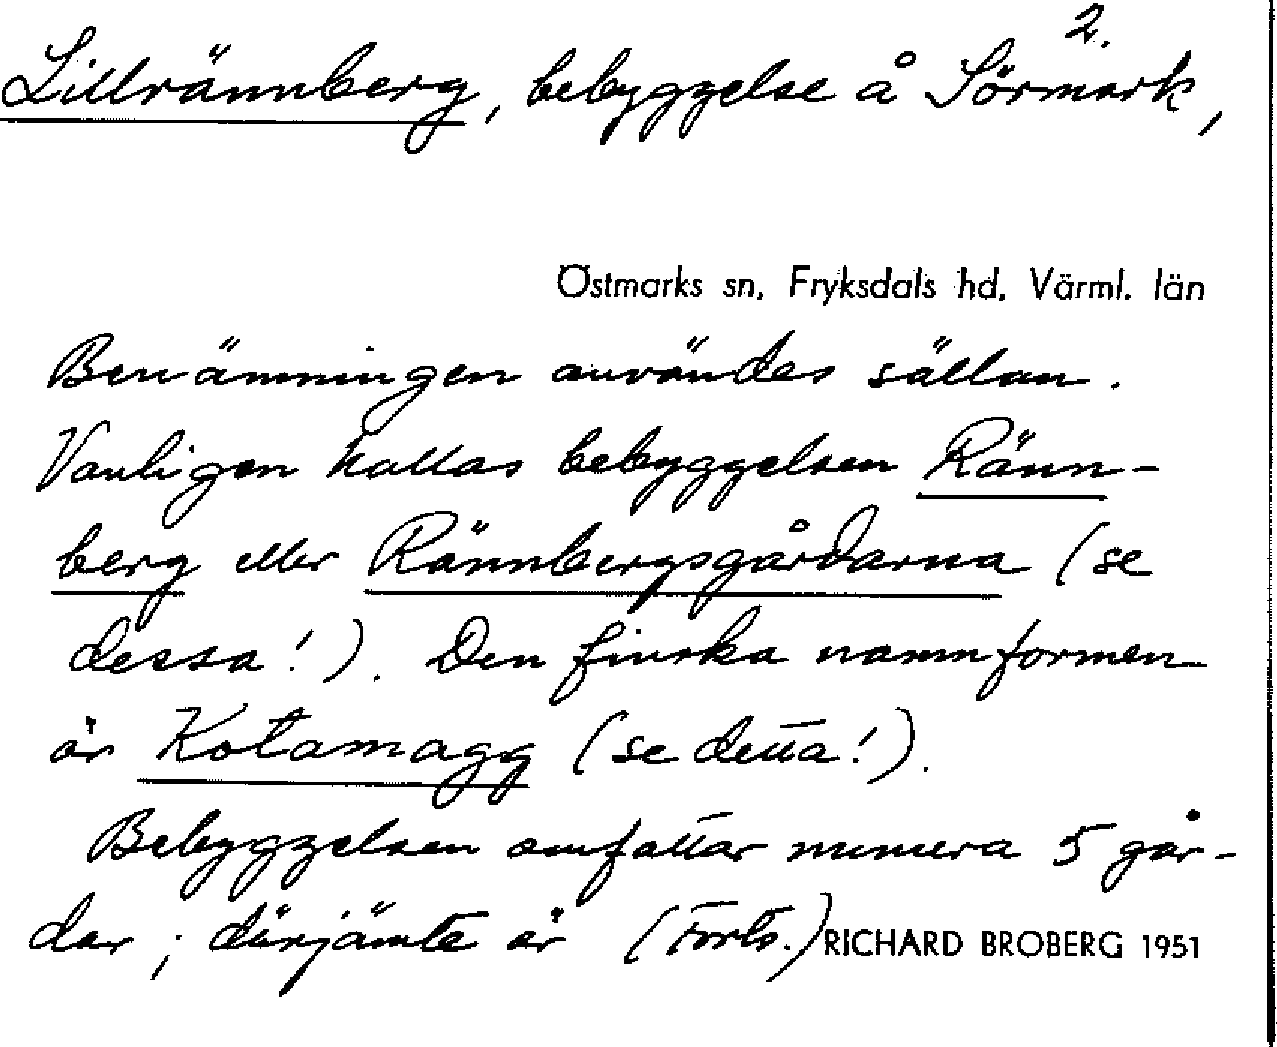 2.
Lillrännberg, bebyggelse å Sörmark,
Östmarks sn, Fryksdals hd, Värml. län
Benämningen användes sällan.
Vanligen kallas bebyggelsen Ränn-
berg eller Rännbergsgårdarna (se
dessa!). Den finska namnformen
är Kotamagg (se detta!).
Bebyggelsen omfattar numera 5 går-
dar; därjämte är (Forts.) RICHARD BROBERG 1951